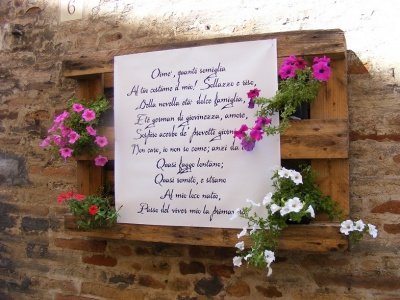 Oimè, quanto somiglia
Al tuo costume il mio! Sollazzo e riso,
Della novella età dolce famiglia,
E te german di giovinezza, amore,
Sospiro acerbo de' provetti giorni
Non curo, io non so come; anzi da loro
Quasi fuggo lontano;
Quasi romito, e strano
Al mio loco natio,
Passo del viver mio la primavera
6